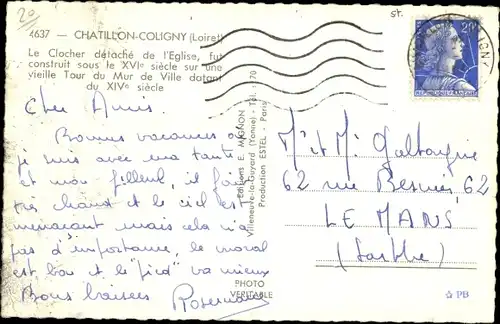 20
4637 — CHATILLON-COLIGNY (Loiret)
Le Clocher détaché de l'Eglise, fut
construit sous le XVIe siècle sur une
vieille Tour du Mur de Ville datant
du XIVe siècle
Cher Amis.
Bonnes vacances où
je suis avec ma tante
et mon filleul, il fait
très chaud et le ciel est
menaçant mais cela n'a
pas d'importance, le moral
est bon et le "pied" va mieux
Bons baisers
Editions E. MIGNON
Villeneuve-la-Guyard (Yonne) - Tél. : 70
Production ESTEL - Paris
PHOTO
VERITABLE
st.
20F
M et Me
62 rue 62
LE MANS
(Sarthe)
☆ PB